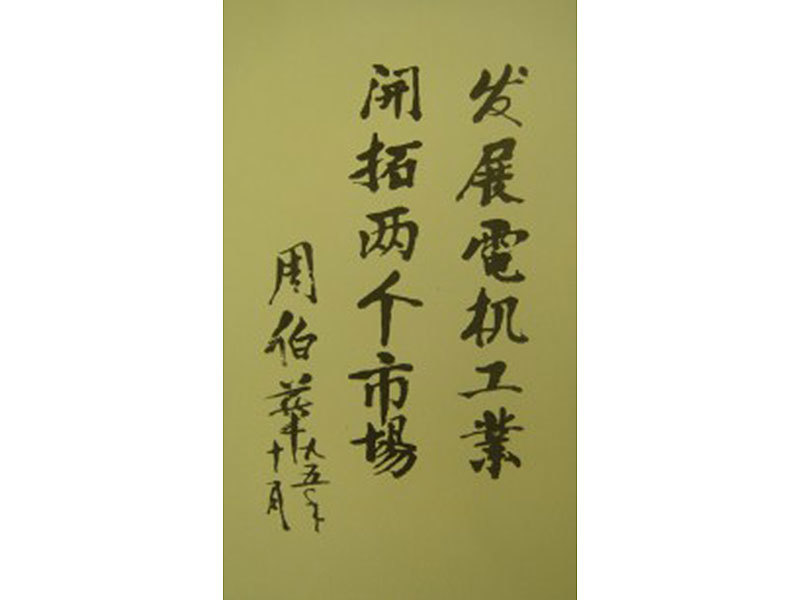 发展電机工業
開拓两个市場
周伯華
九五年
十月